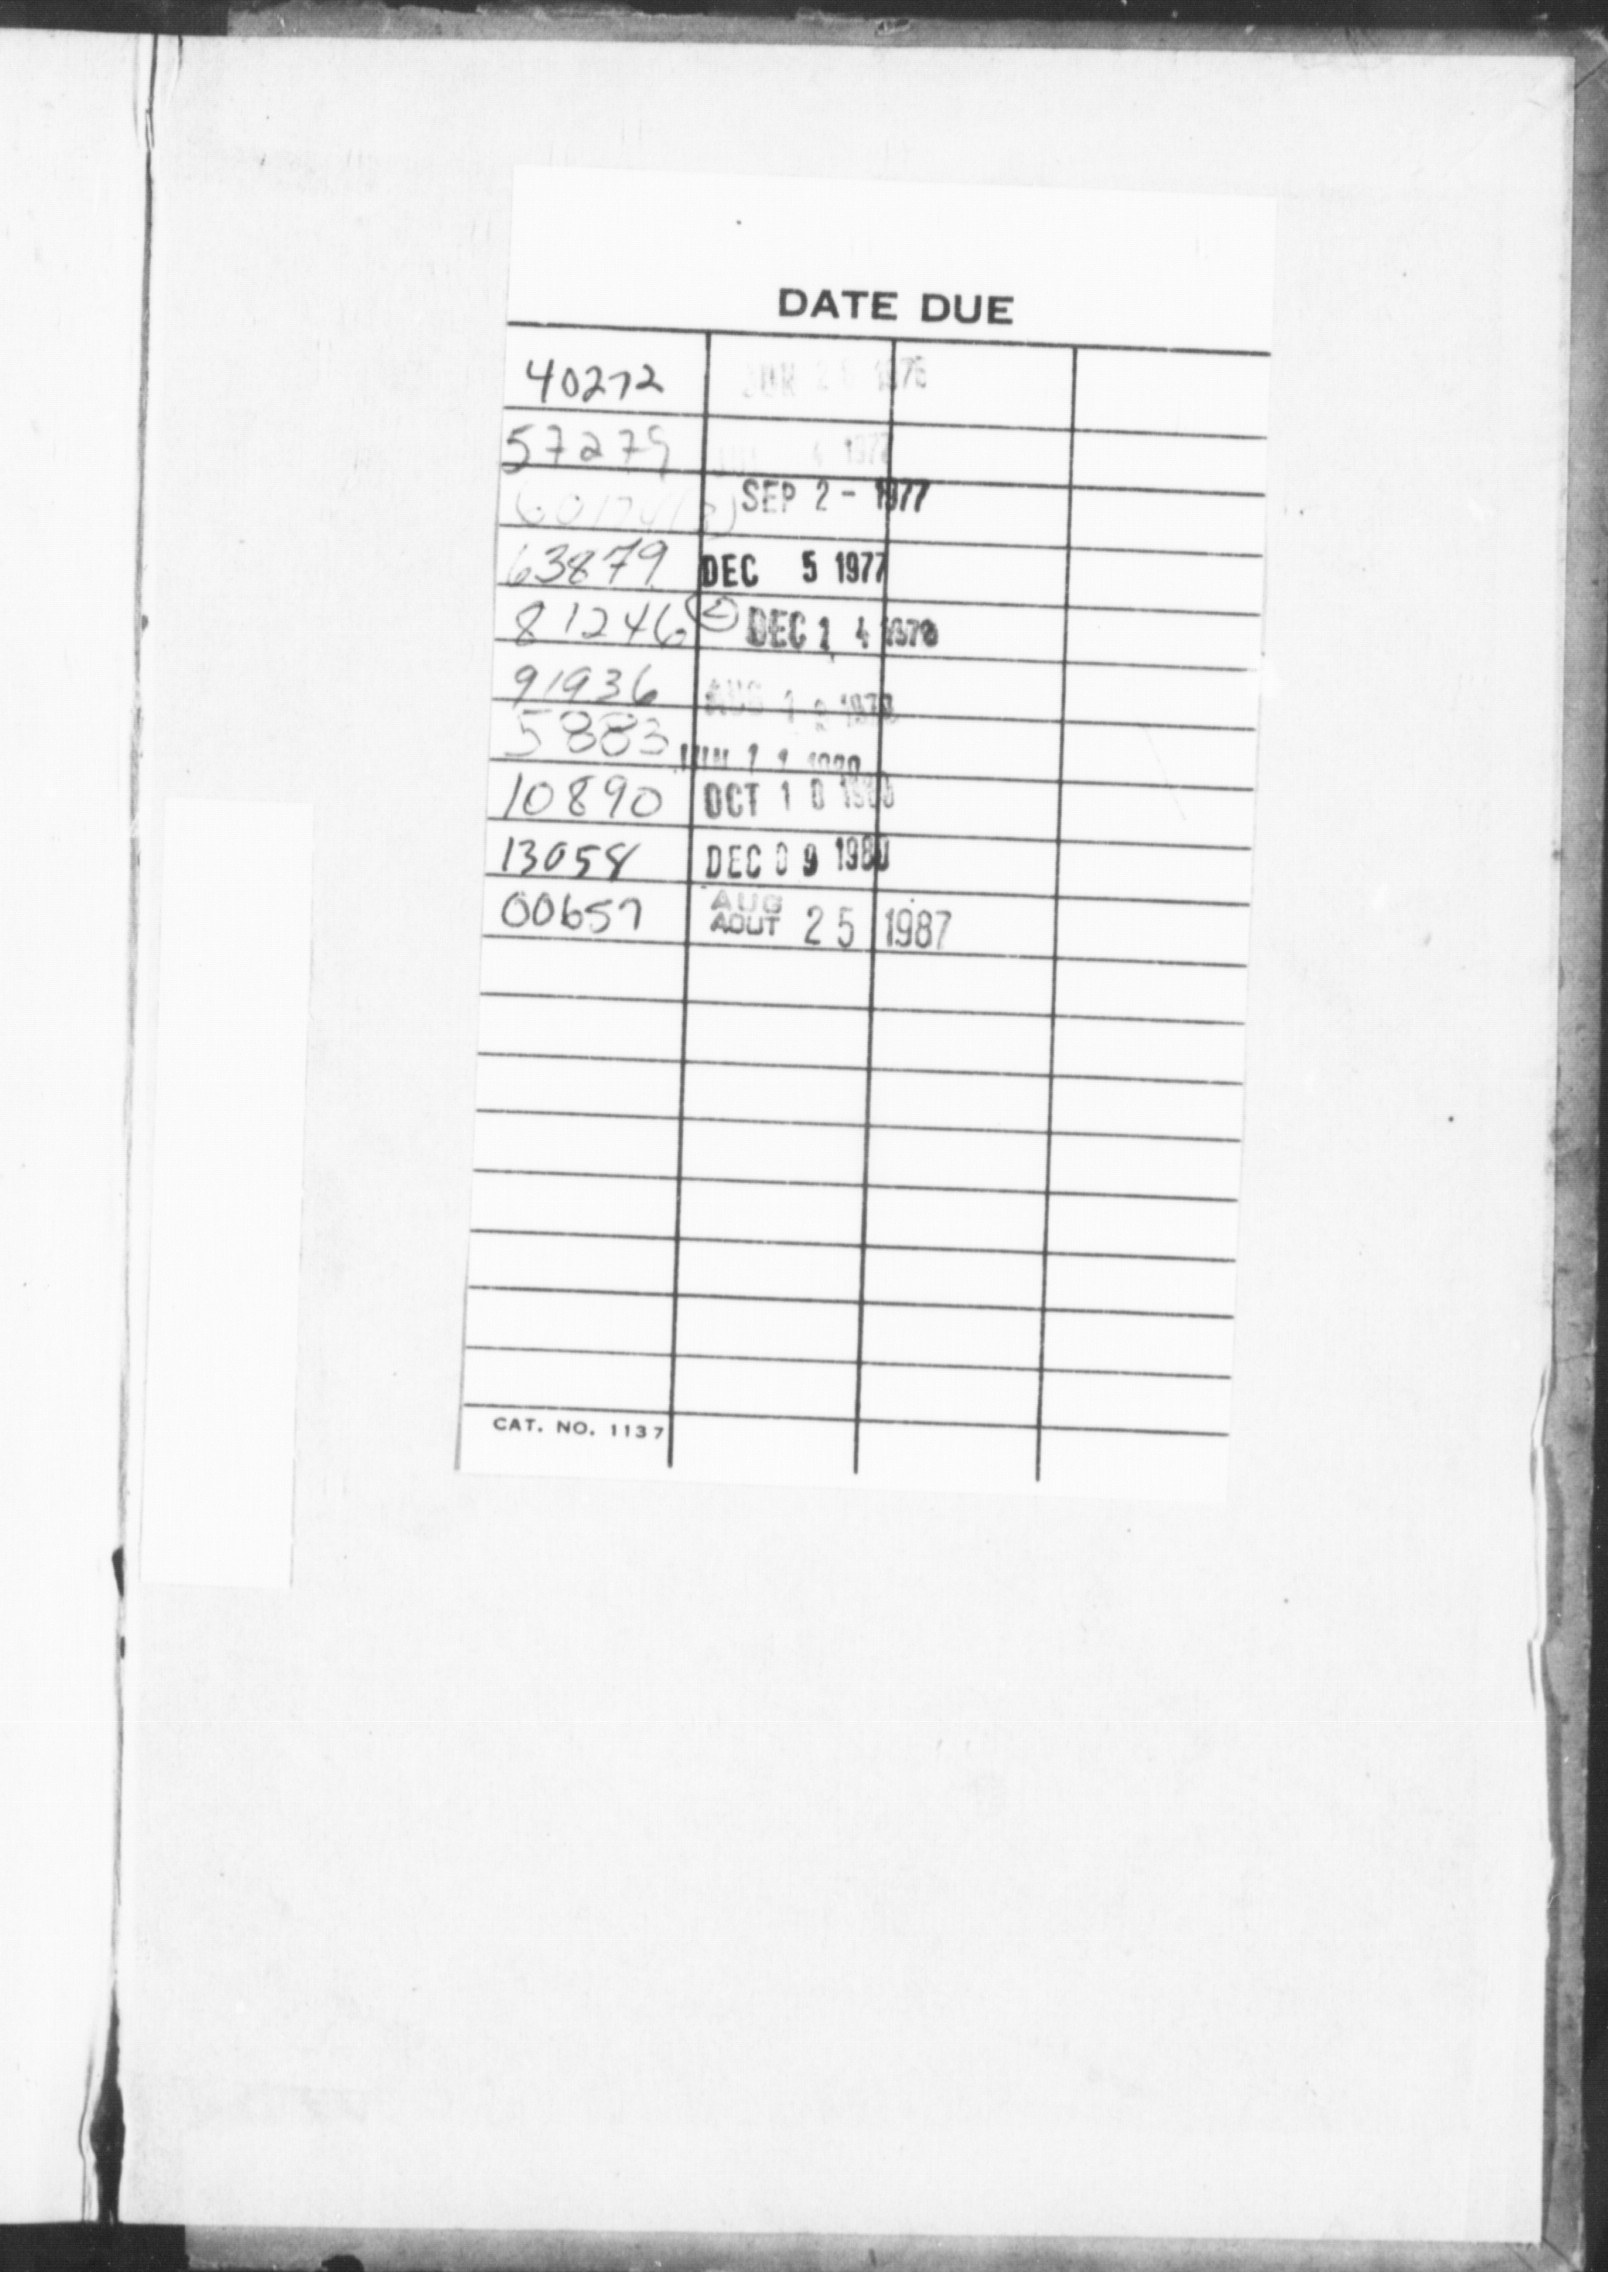 DATE DUE
40272 JUN 2 1976
57279 JUL 4 1977
SEP 2 - 1977
63879 DEC 5 1977
81246 DEC 1 4 1978
91936 AUG 1
5883 JUN 1 1 1980
10890 OCT 1 0 1980
13058 DEC 0 9 1980
AUG
00657 AOUT 25 1987
CAT. NO. 1137